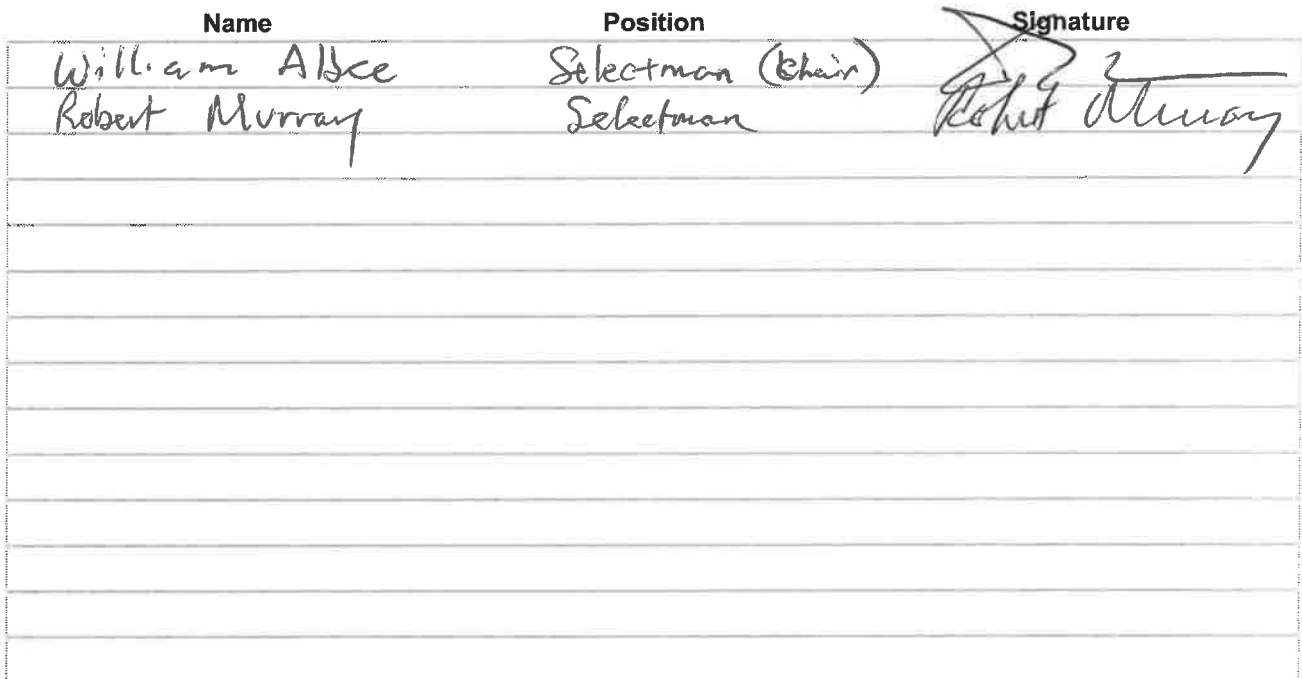 Name Position Signature
William Abce Selectman (Chair)
Robert Murray Selectman Robert Murray